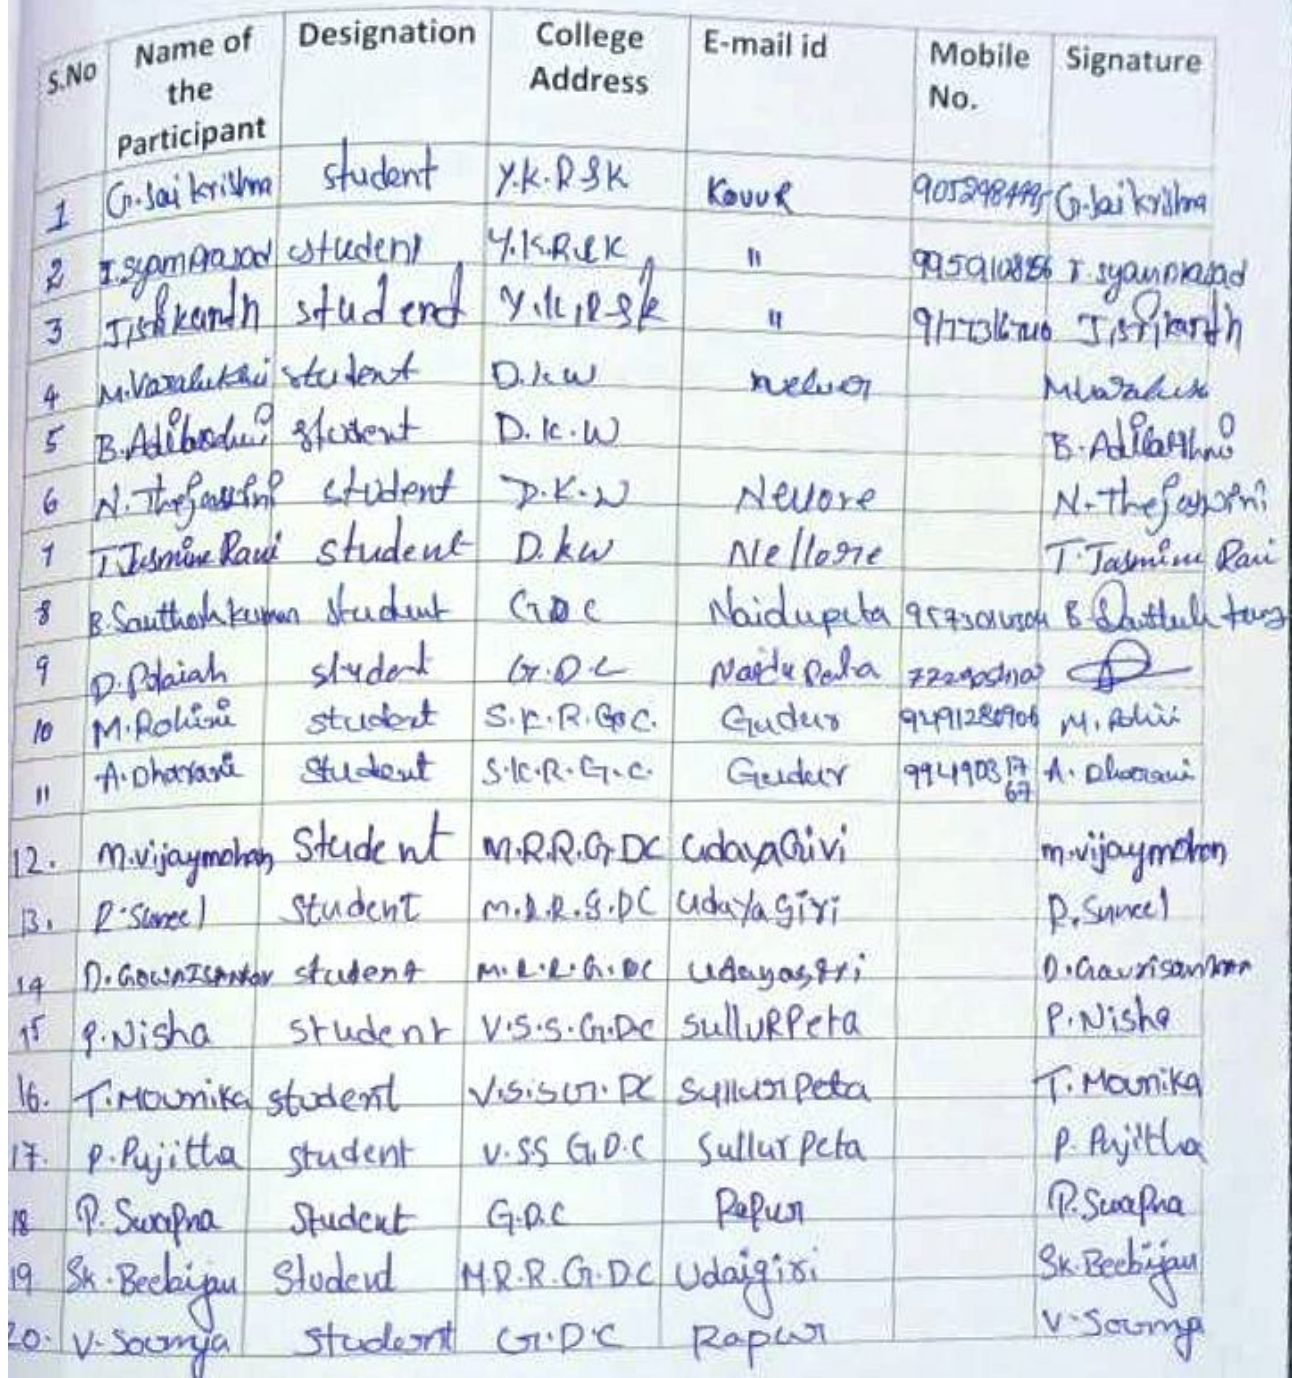 S.No Name of the Participant Designation College Address E-mail id Mobile No. Signature
1 G.Jai krishna student Y.K.R.S.K Kovur G.Jai krishna
2 T.syamprasad student Y.K.R.S.K " T.syamprasad
3 student Y.K.R.S.k " J.Srikandh
4 student D.k.W
5 student D.K.W
6 N.Thejaswini student D.K.W Nellore N-Thejaswini
7 T.Jasmine Rani student D.kw Nellore T.Jasmine Rani
8 B.Santhosh kumar student GDC Naidupeta
9 D.Polaiah student G.D.C Naidu Peta
10 M.Rohini student S.K.R.G.C. Gudur 9491280906 M.Rohini
11 A.Dharani Student S.K.R.G.C. Gudur A.Dharani
12. M.vijaymohan Student M.R.R.G.DC UdayaGiri m.vijaymohan
13. R.Suneel Student M.R.R.G.DC Udayagiri R.Suneel
14 D.Gowrisankar student M.R.R.G.DC Udayagiri D.Gaurisankar
15 P.Nisha student V.S.S.G.DC SullurPeta P.Nisha
16. T.Mounika student V.S.S.G.DC SullurPeta T.Mounika
17. P.Pujitha student V.SS G.D.C SullurPeta P.Pujitha
18 P.Swapna Student G.D.C Rapur P.Swapna
19 Sk.Beebijan Student M.R.R.G.DC Udaigiri Sk.Beebijan
20. V.Sowmya Student G.D.C Rapur V.Sowmya